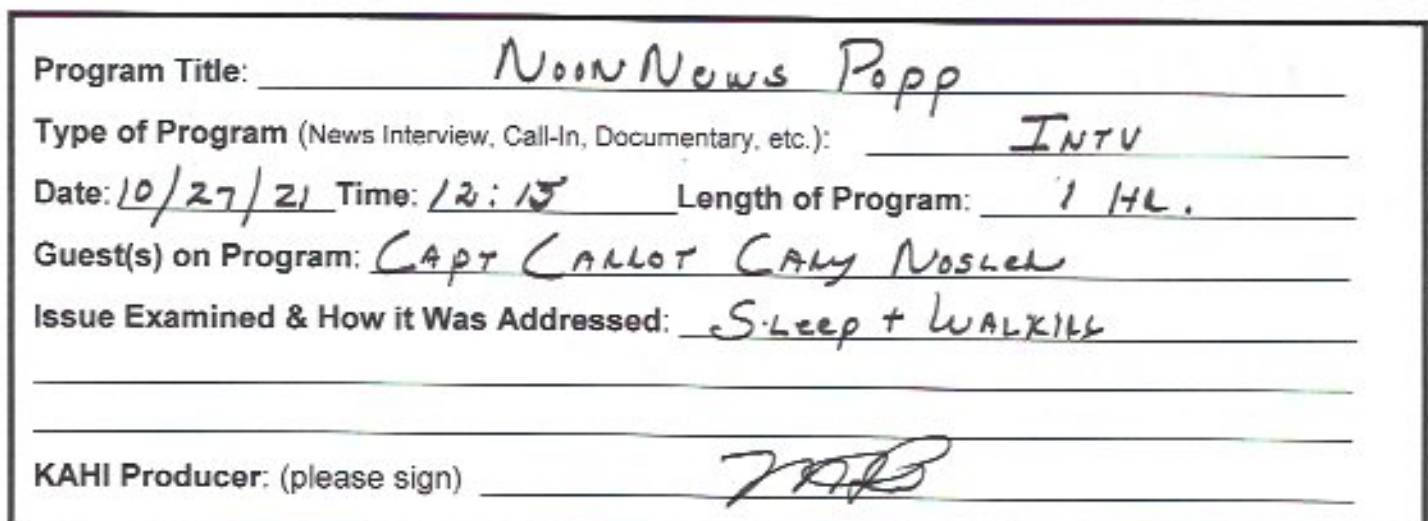 Program Title: Noon News Popp
Type of Program (News Interview, Call-In, Documentary, etc.): INTV
Date: 10/27/21 Time: 12:15 Length of Program: 1 HR.
Guest(s) on Program: CAPT
Issue Examined & How it Was Addressed: Sleep +
KAHI Producer: (please sign)